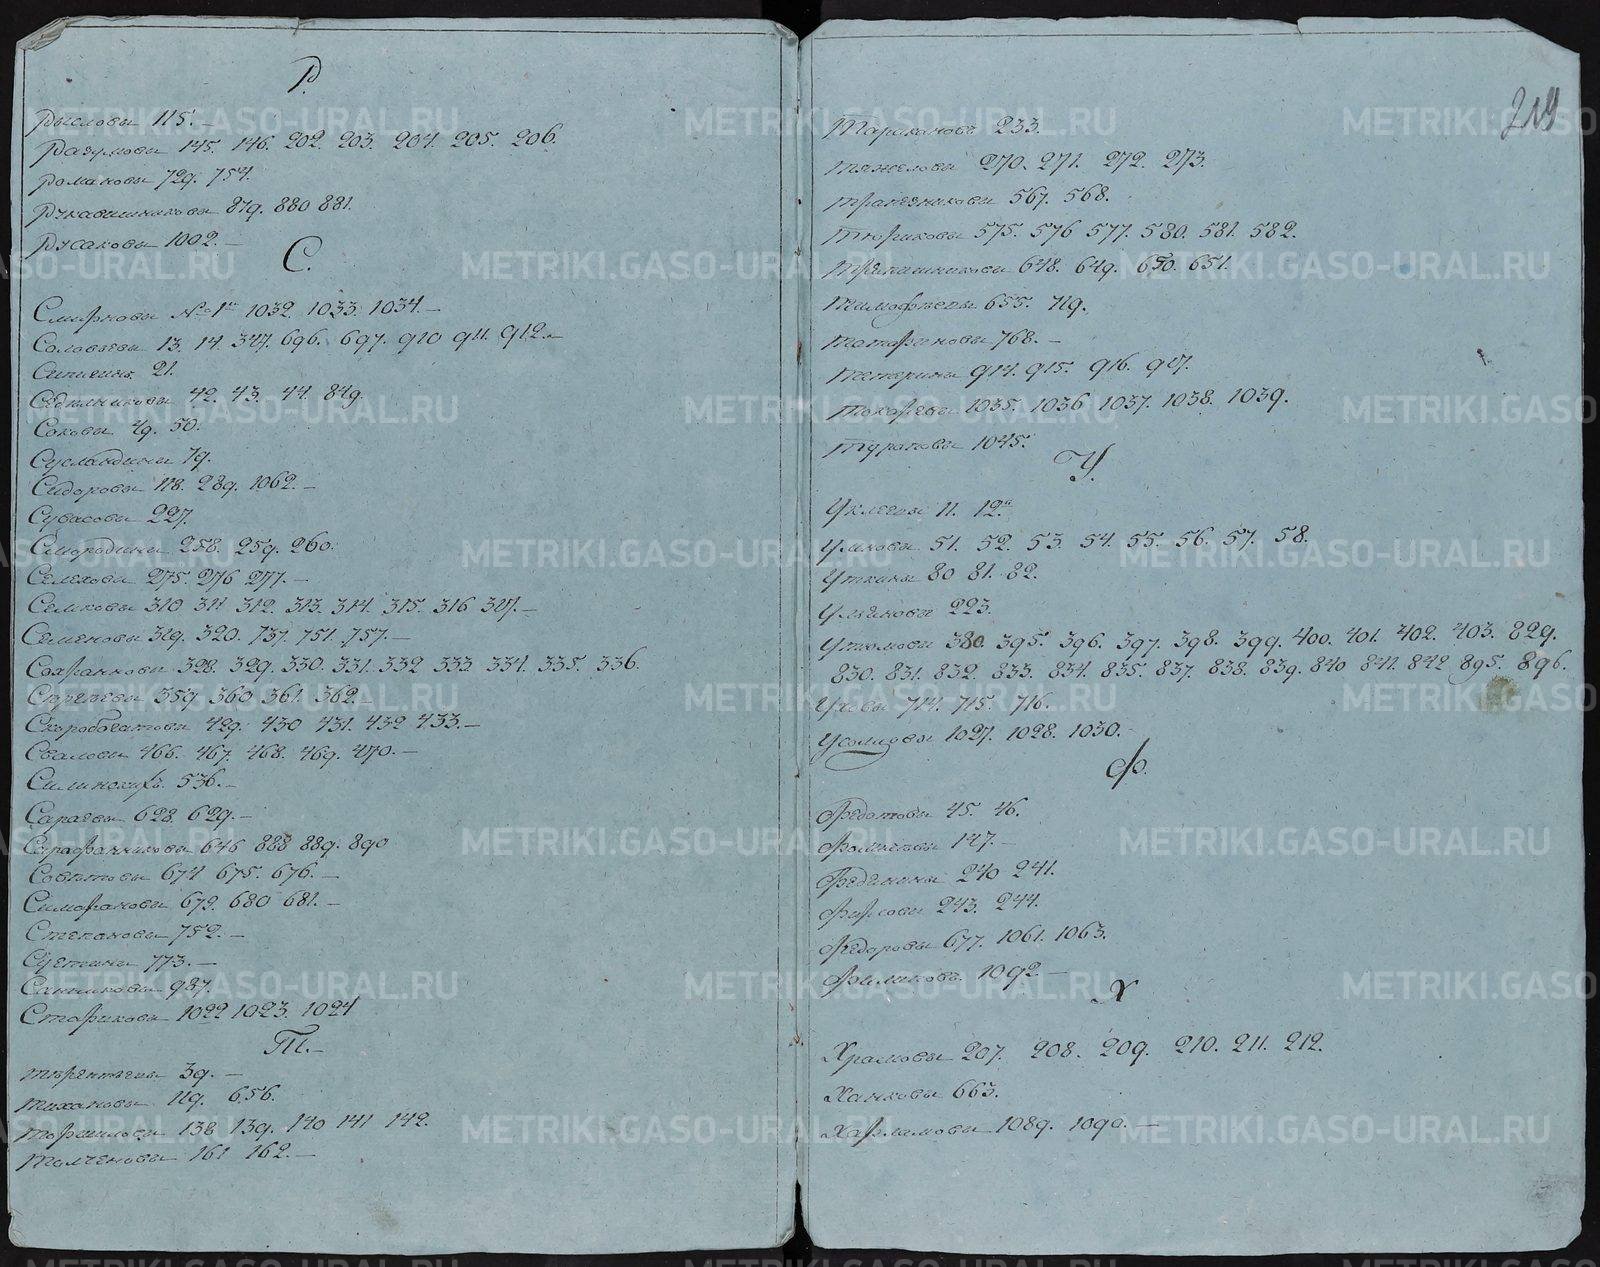 Р.
Рысловы 115. –
Разумовы 145. 146. 202. 203. 204. 205. 206.
Романовы 729. 754.
Рукавишниковы 879. 880 881.
Русаковы 1002. –
С.
Смирновы №1й 1032. 1033. 1034. –
Соловьевы 13. 14. 347. 696. 697. 910 911. 912. –
Сипягинъ. 21.
Седельниковы 42. 43. 44. 849.
Соковы 49. 50.
79.
Сидоровы 118. 289. 1062. –
227.
Смородины 258. 259. 260.
Селеховы 275. 276 277. –
Селковы 310 311 312. 313. 314. 315. 316 317. –
Семеновы 319. 320. 737. 751. 757. –
328. 329. 330. 331. 332 333 334. 335. 336.
359. 360 361. 362. –
Скоробогатовы 429. 430 431. 432 433. –
Сваловы 466. 467. 468. 469. 470. –
536. –
Сараевы 628. 629. –
Сарафанниковы 646 888 889. 890
Советовы 674 675. 676. –
679. 680 681. –
Степановы 752. –
Суетины 773. –
Санниковы 987.
Стариковы 1022 1023. 1024
Т. –
Терентьевы 39. –
Тихановы 119. 656.
Торшиловы 138 139. 140 141 142.
Толченовы 161 162. –
219
Таракановъ 233.
Тяжеловы 270. 271. 272. 273.
Трапезниковы 567. 568.
Тюриковы 575. 576 577. 580. 581. 582.
648. 649. 650. 651.
Тимофеевы 655. 719.
Татариновы 768. –
Тетерины 914. 915. 916. 917.
Токаревы 1035. 1036 1037. 1038. 1039.
Турановы 1045.
У.
11. 12.
51. 52. 53. 54. 55. 56. 57. 58.
Уткины 80 81. 82.
223.
380. 395. 396. 397. 398. 399. 400. 401. 402. 403. 829.
830. 831. 832. 833. 834. 835. 837. 838. 839. 840 841. 842 895. 896.
714. 715. 716.
Усольцовы 1027. 1028. 1030.
Ф.
Федотовы 45. 46.
147. –
240 241.
Фирсовы 243. 244.
Федоровы 677. 1061. 1063.
1092. –
Х
Храмовы 207. 208. 209. 210. 211. 212.
Ханковы 663.
Харламовы 1089. 1090. –
METRIKI.GASO-URAL.RU